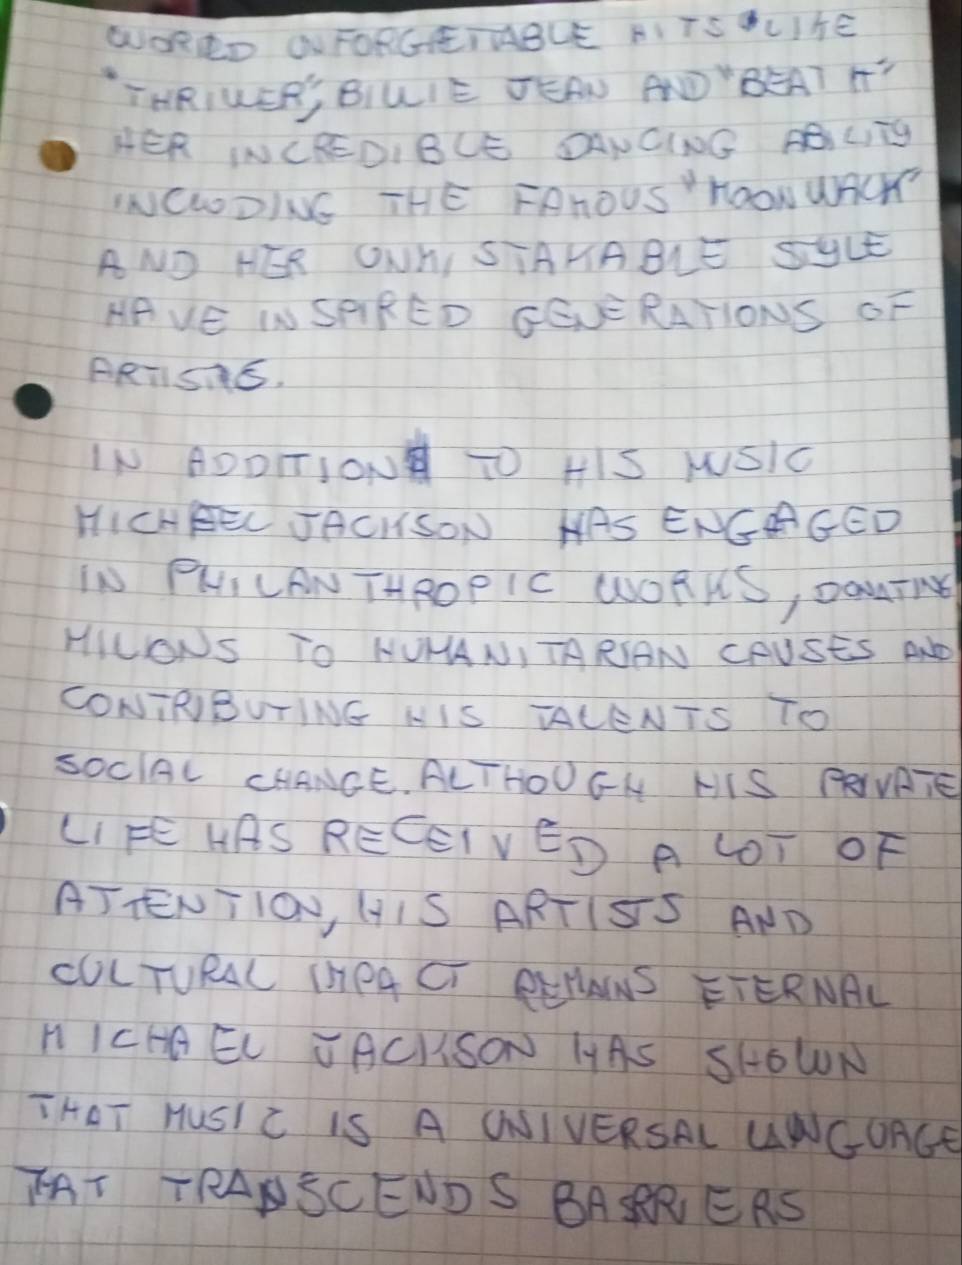 WORLD UNFORGETTABLE HITS LIKE
"THRILLER", BILLIE JEAN AND "BEAT IT"
HER INCREDIBLE DANCING ABILITY
INCLUDING THE FAMOUS "MOONWACK"
AND HER UNMISTAKABLE SYLE
HAVE INSPIRED GENERATIONS OF
ARTISTS.
IN ADDITION TO HIS MUSIC
MICHAEL JACKSON HAS ENGAGED
IN PHILANTHROPIC WORKS, DONATING
MILLIONS TO HUMANITARIAN CAUSES AND
CONTRIBUTING HIS TALENTS TO
SOCIAL CHANGE. ALTHOUGH HIS PRIVATE
LIFE HAS RECEIVED A LOT OF
ATTENTION, HIS ARTISTS AND
CULTURAL IMPACT REMAINS ETERNAL
MICHAEL JACKSON HAS SHOWN
THAT MUSIC IS A UNIVERSAL LANGUAGE
TAT TRANSCENDS BARRIERS